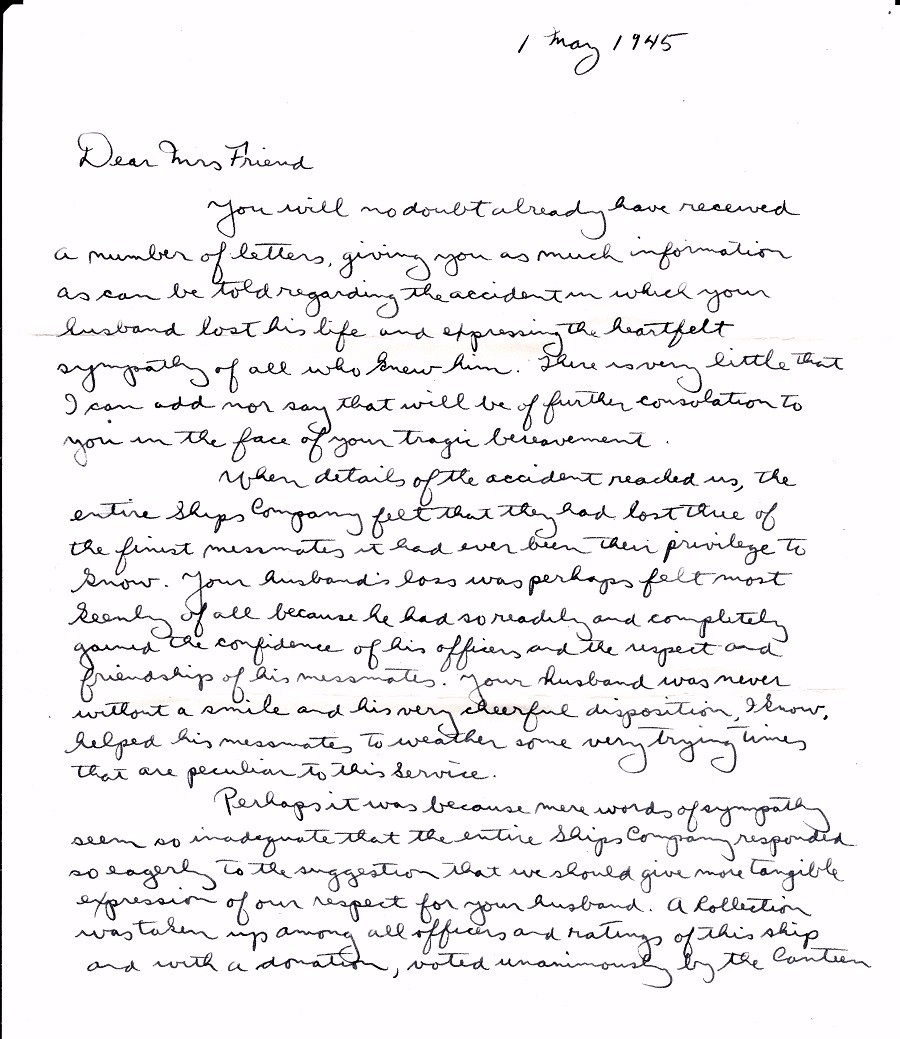 1 May 1945
Dear Mrs Friend
You will no doubt already have received
a number of letters, giving you as much information
as can be told regarding the accident in which your
husband lost his life and expressing the heartfelt
sympathy of all who knew him. There is very little that
I can add nor say that will be of further consolation to
you in the face of your tragic bereavement.
When details of the accident reached us, the
entire Ships Company felt that they had lost three of
the finest messmates it had ever been their privilege to
know. Your husband's loss was perhaps felt most
keenly of all because he had so readily and completely
gained the confidence of his officers and the respect and
friendship of his messmates. Your husband was never
without a smile and his very cheerful disposition, I know,
helped his messmates to weather some very trying times
that are peculiar to this Service.
Perhaps it was because mere words of sympathy
seem so inadequate that the entire Ships Company responded
so eagerly to the suggestion that we should give more tangible
expression of our respect for your husband. A Collection
was taken up among all officers and ratings of this ship
and with a donation, voted unanimously by the Canteen